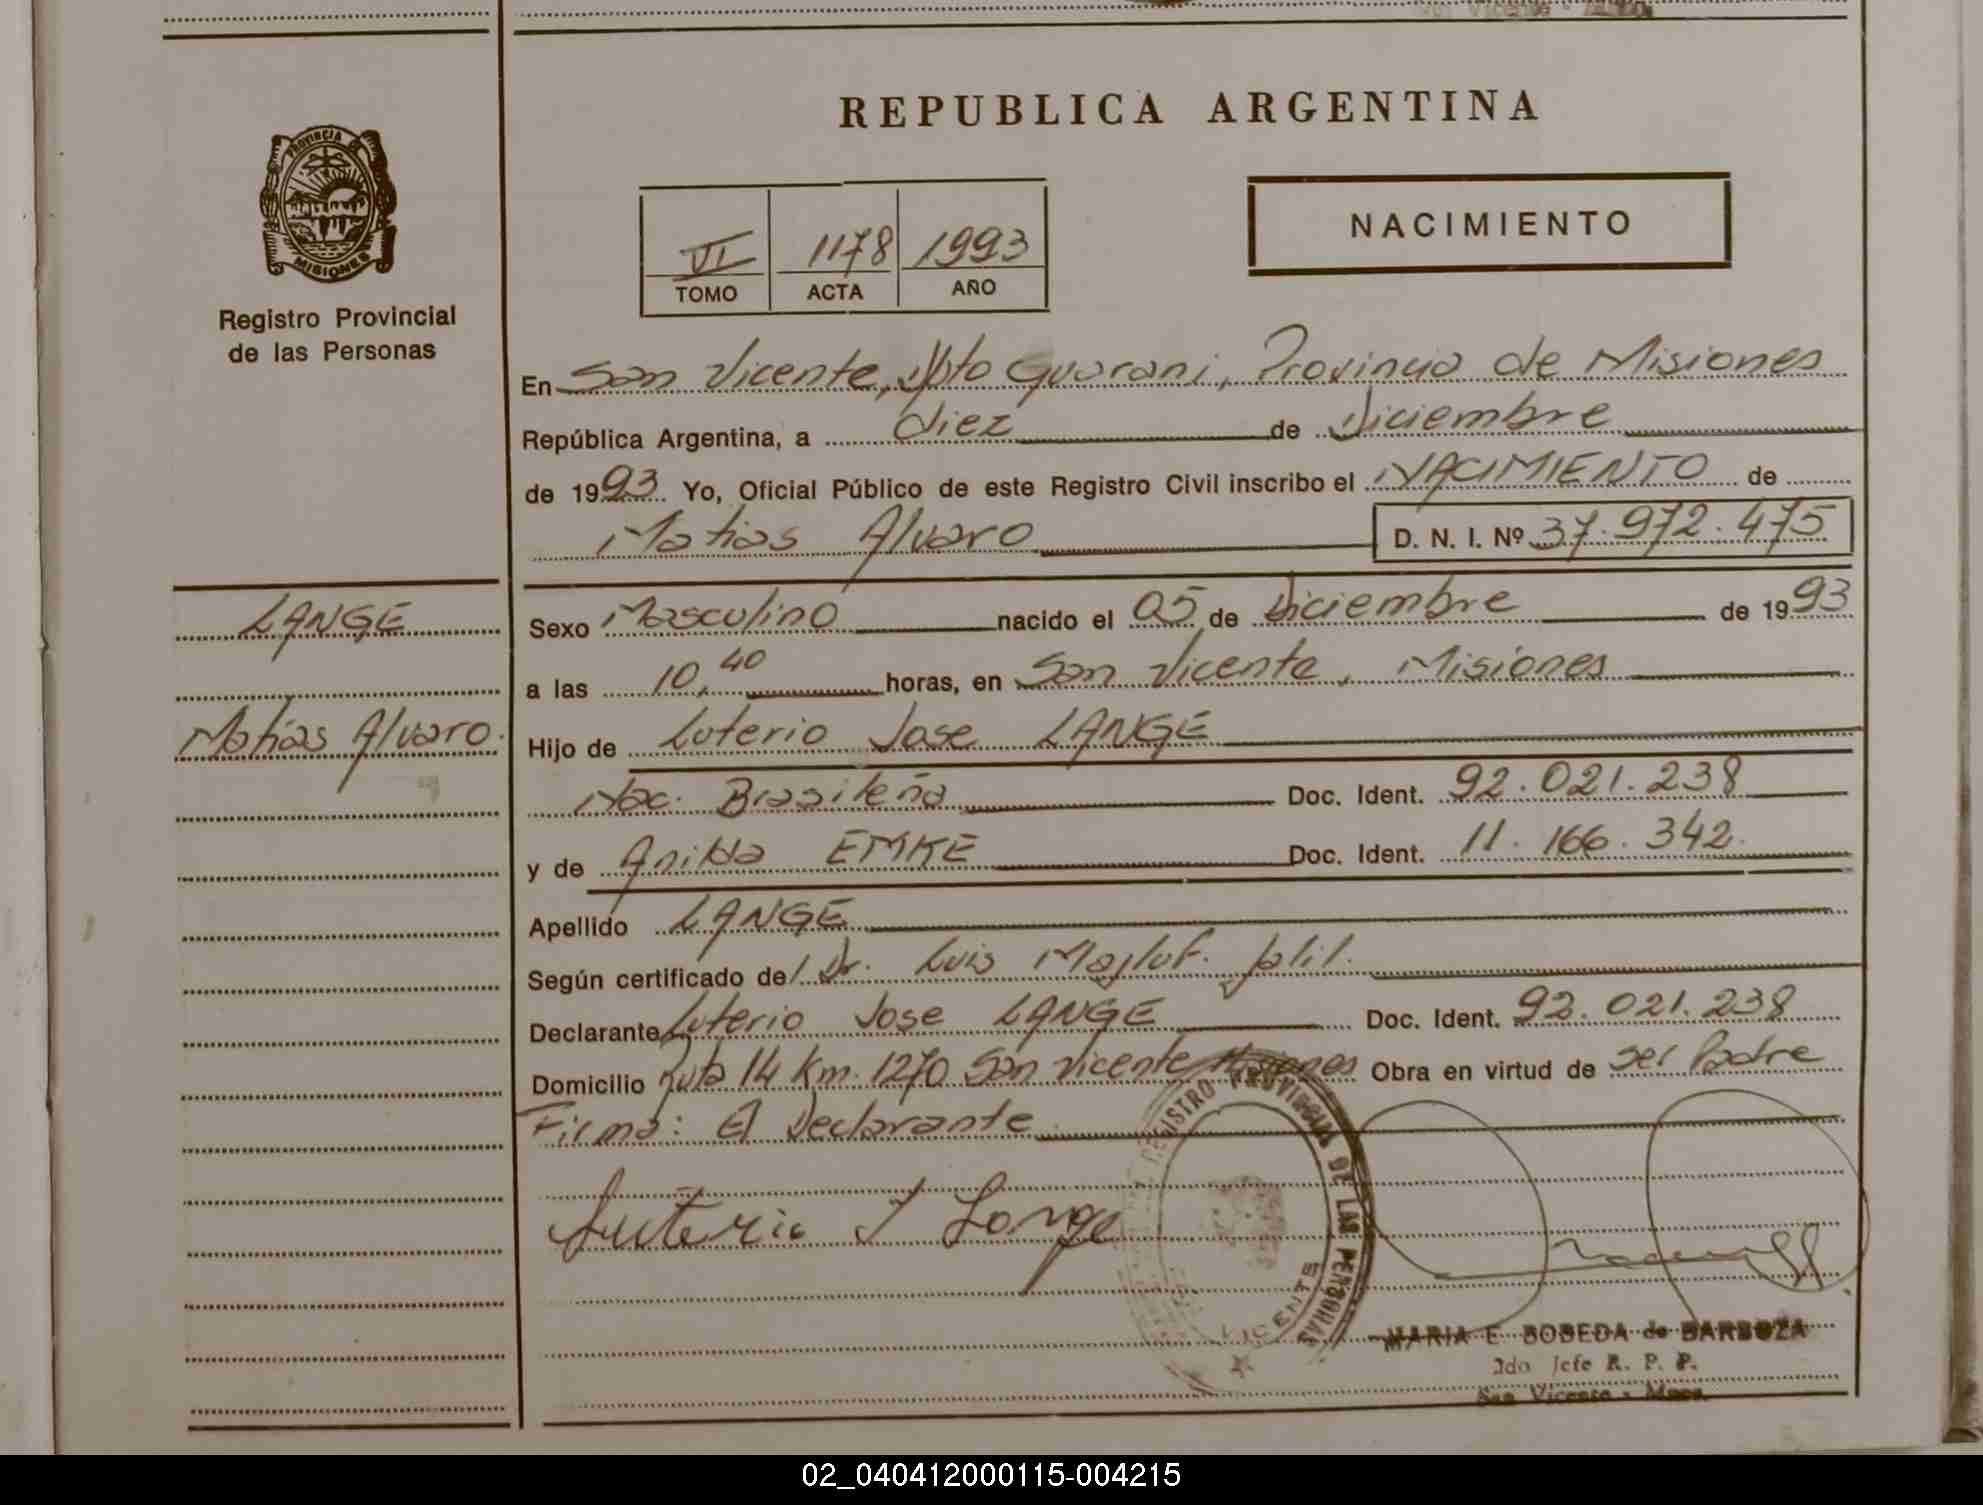 REPUBLICA ARGENTINA
PROVINCIA
MISIONES
Registro Provincial
de las Personas
VI 1178 1993
TOMO ACTA AÑO
NACIMIENTO
En San Vicente, Dpto Guarani, Provincia de Misiones
República Argentina, a diez de Diciembre
de 1993 Yo, Oficial Público de este Registro Civil inscribo el NACIMIENTO de
Matias Alvaro D. N. I. Nº 37.972.475
LANGE
Matias Alvaro.
Sexo Masculino nacido el 05 de Diciembre de 1993
a las 10,40 horas, en San Vicente, Misiones
Hijo de Luterio Jose LANGE
Nac. Brasileña Doc. Ident. 92.021.238
y de Anilda EMKE Doc. Ident. 11.166.342.
Apellido LANGE
Según certificado del Dr. Luis Majluf. Jalil.
Declarante Luterio Jose LANGE Doc. Ident. 92.021.238
Domicilio Ruta 14 Km. 1270 San Vicente Misiones Obra en virtud de ser Padre
Firma: El Declarante
Luterio J Lange
REGISTRO PROVINCIAL DE LAS PERSONAS
VICENTE
MARIA E. BOBEDA de BARBOZA
2do Jefe R. P. P.
San Vicente - Mnes.
02_040412000115-004215